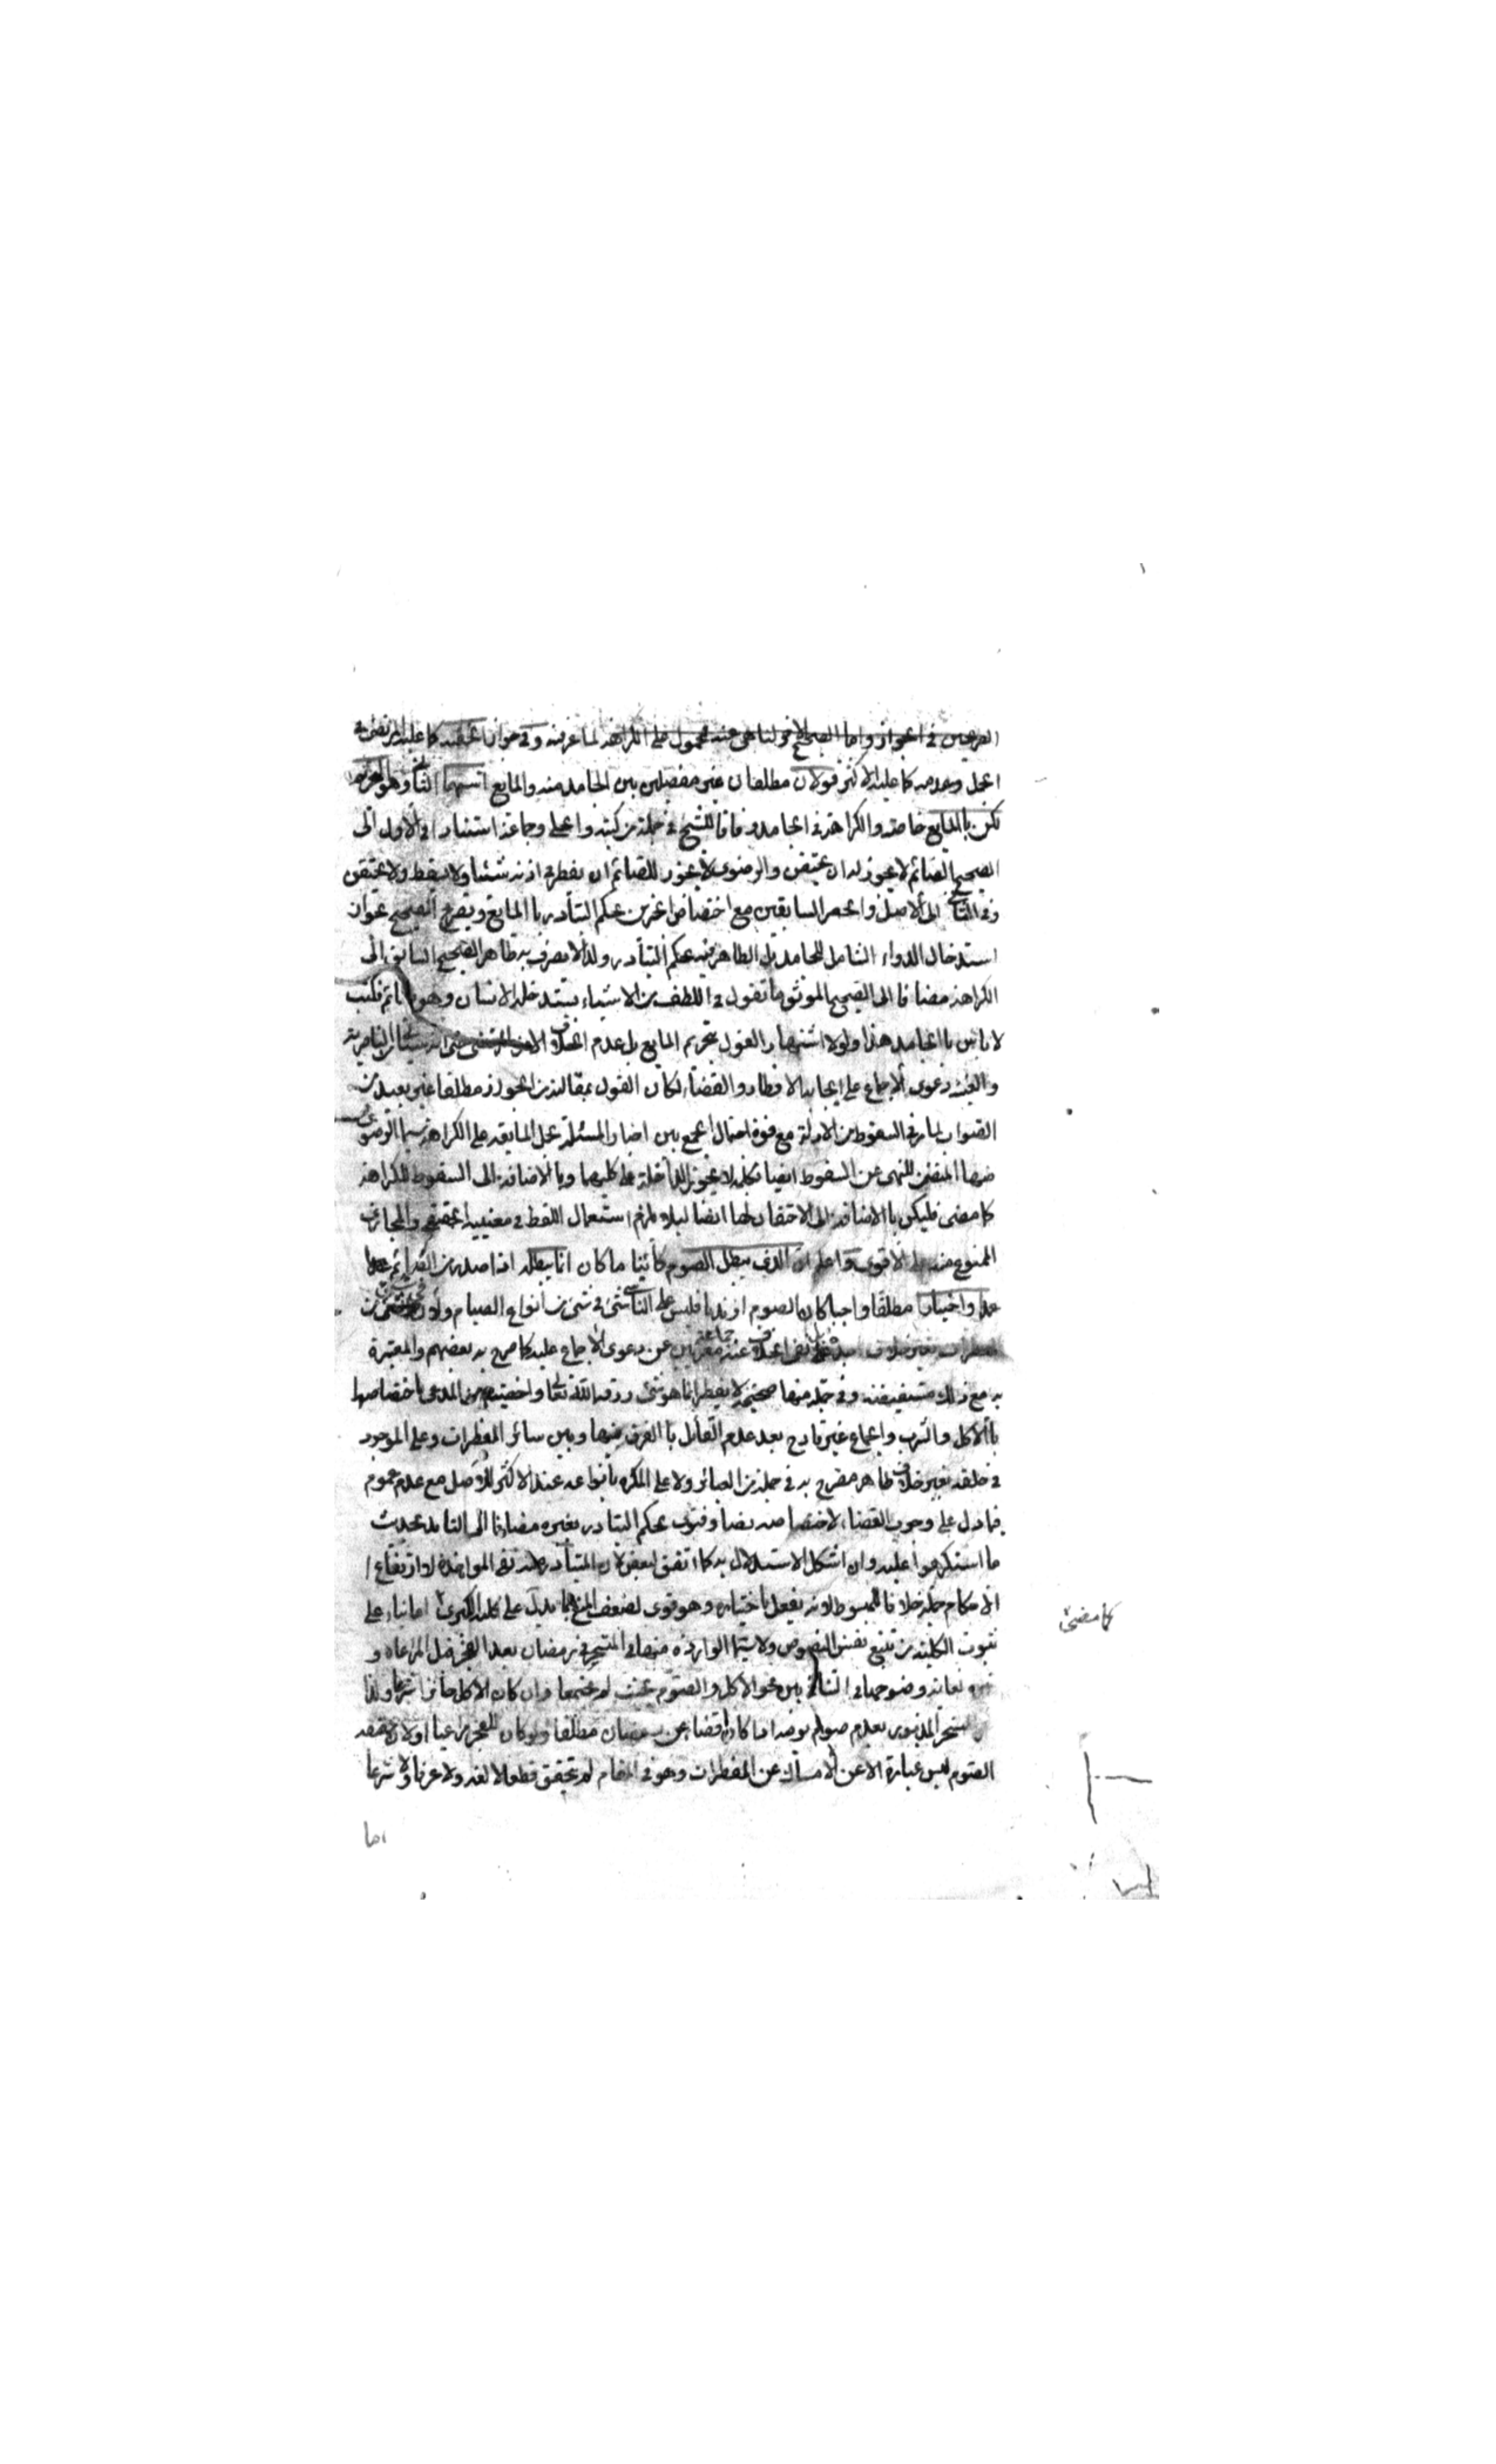 في الجواز واما الصحيح الاخر لنا هي عنه محمول على الكراهة لما عرفته وفي جواز الحقنة كما عليه المرتضى في
الجمل وعدمه كما عليه الاكثر قولان مطلقان غير مفصلين بين الجامد منه والمايع اشبهها الثاني وهو التحريم
لكن بالمايع خاصة والكراهة في الجامد وفاقا للشيخ في جملة من كتبه والحلي وجماعة استنادا في الاول الى
الصحيح الصائم لا يجوز له ان يحتقن والرضوي لا يجوز للصائم ان يقطر في اذنه شيئا ولا يسعط ولا يحتقن
وفي الثاني الى الاصل والحصر السابقين مع اختصاص الخبرين بحكم التبادر بالمايع وتصريح الصحيح بجواز
استدخال الدواء الشامل للجامد بل الظاهر فيه بحكم التبادر ولذا لا يصرف به ظاهر الصحيح السابق الى
الكراهة مضافا الى الصحيح الموثق ما تقول في اللطف من الاشياء يستدخله الانسان وهو صائم فكتب
لا باس بالجامد هذا ولولا اشتهار القول بتحريم المايع بل عدم الخلاف الا من المرتضى حتى انه في الناصرية
والغنية دعوى الاجماع على ايجابه الافطار والقضاء لكان القول بمقالته من الجواز مطلقا غير بعيد من
الصواب لما في السعوط من الادلة مع قوة احتمال الجمع بين اخبار المسئلة بحمل المانعة على الكراهة سيما الرضوي
منها المتضمن للنهي عن السعوط ايضا بكلمة لا يجوز الداخلة على كليهما وبالاضافة الى السعوط للكراهة
كما مضى فليكن بالاضافة الى الاحتقان لها ايضا ليلا يلزم استعمال اللفظ في معنييه الحقيقي والمجازي
الممنوع منه على الاقوى واعلم ان الذي يبطل الصوم كائنا ما كان انما يبطله اذا صدر من الصائم
عمدا واختيارا مطلقا واجبا كان الصوم او ندبا فليس على الناسي شيء في شيء من انواع الصيام ولا في شيء من
المفطرات بغير خلاف اجده بل نفى الخلاف عنه جماعة معربين عن دعوى الاجماع عليه كما صرح به بعضهم والمعتبرة
به مع ذلك مستفيضة وفي جملة منها صحيحة لا يفطر انما هو شيء رزقه الله تعالى واخصيتها من المدعى باختصاصها
بالاكل والشرب والجماع غير قادح بعد عدم القائل بالفرق بينها وبين سائر المفطرات وعلى الموجود
في حلقه بغير خلاف ظاهر مصرح به في جملة من العبائر ولا على المكره بانواعه عند الاكثر للاصل مع عدم عموم
فيما دل على وجوب القضاء لاختصاصه نصا وفتوى بحكم التبادر بغيره مضافا الى التايد بحديث
ما استكرهوا عليه وان اشكل الاستدلال به كما اتفق لبعض لان المتبادر منه نفي المواخذة لا ارتفاع
الاحكام جملة خلافا للمبسوط لانه يفعل باختياره وهو قوي لضعف الاصل بما يدل على كلية الكبرى اما بناء على
ثبوت الكلية من تتبع نفس النصوص ولا سيما الواردة منها في المتسحر في رمضان بعد الفجر قبل المراعاة و
وضوحها في التنافي بين نحو الاكل والصوم بحيث لم يجتمعا وان كان الاكل جائزا شرعا ولذا
المتسحر المذبور بعدم صوم يومه اذا كان قضاء عن رمضان مطلقا ولو كان للفجر مراعيا اولا لانه
الصوم ليس عبارة الا عن الامساك عن المفطرات وهو في المقام لم يتحقق قطعا لا لغة ولا عرفا ولا شرعا
اما
كما مضى